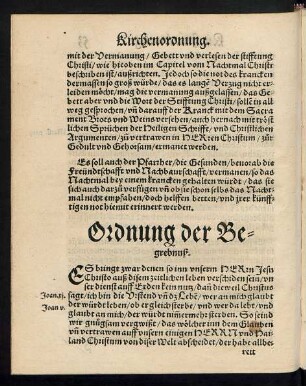 Kirchenordnung.
mit der Vermanung / Gebett vnd verlesen der stifftung
Christi / wie hieoben im Capitel vom Nachtmal Christi
beschriben ist / außrichten. Jedoch so die not des krancken
dermassen so groß würde / das es lange Verzüg nicht er-
leiden möcht / mag die vermanung außgelassen / das Ge-
bett aber vnd die Wort der Stifftung Christi / sollē in all-
weg gesprochen / vnd darauff der Kranck mit dem Sacra-
ment Brots vnd Weins versehen / auch hernach mit trö-
stlichen Sprüchen der Heiligen Schrifft / vnd Christlichen
Argumenten / zu vertrawen in HERren Christum / zůr
Gedult vnd Gehorsam / ermanet werden.
Es soll auch der Pfarrher / die Gesunden / beuorab die
Freündtschafft vnd Nachbaurschafft / vermanen / so das
Nachtmal bey einem krancken gehalten würdt / das sie
sich auch darzů verfügen vn̄ ob sie schon selbs das Nacht-
mal nicht empfahen / doch helffen betten / vnd jrer künff-
tigen not hieneit erinnert werden.
Ordnung der Be-
grebnuß.
ES bringe zwar denen so inn vnserm HERrn Jesu
Christo auß disem zeitlichen leben verscheiden seind / vn-
ser dienst auff Erden kein nutz / dan̄ die weil Christus
Joan.xj.
sagt / ich bin die Vrstend vn̄ dz Lebē / wer an mich glaubt
der würdt leben / ob er gleich sterbe / vnd wer da lebt / vnd
Joan v.
glaubt an mich / der würdt nimmermeh sterben. So seind
wir gnůgsam vergwißt / das wölcher inn dem Glauben
vn̄ vertrawen auff vnsern einigen HERRN vnd Hai-
land Christum von diser Welt abscheidet / der habe aller-
reit